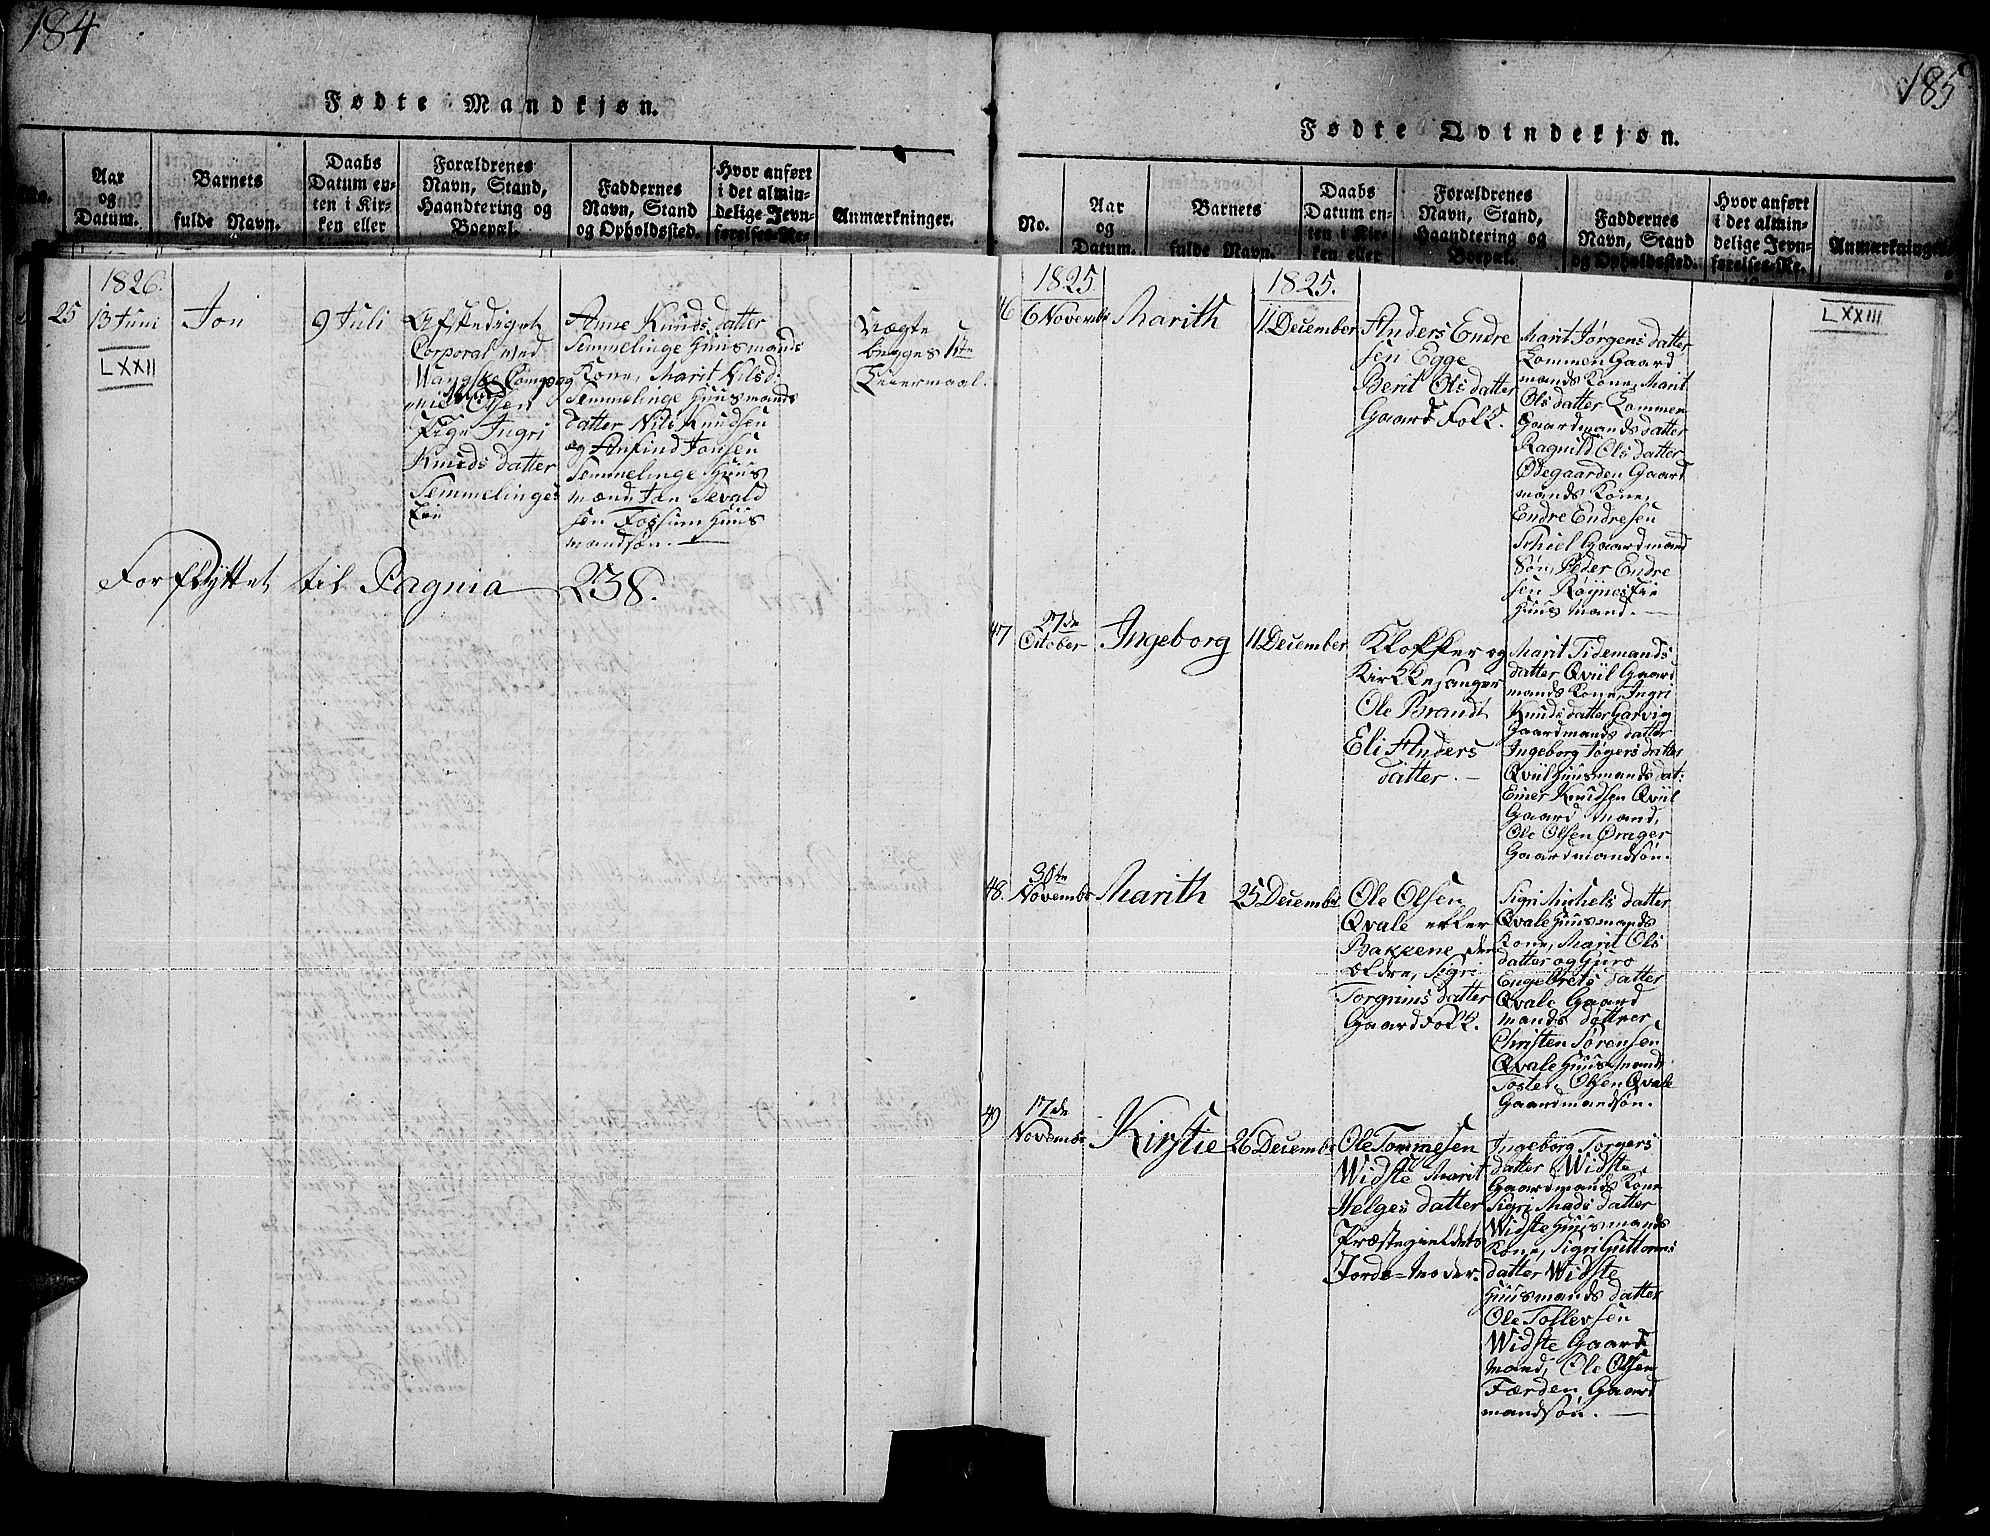 184
Fødte Mandkjøn.
No.
Aar
og
Datum.
Barnets
fulde Navn.
Daabs
Datum en-
ten i Kir-
ken eller
Forældrenes
Navn, Stand,
Haandtering og
Boepæl.
Faddernes
Navn, Stand
og Opholdssted.
Hvor anført
i det almin-
delige Jevn-
førelses-Re-
Anmærkninger.
1826.
25
13 Juni
LXXII
Jon
9 Juli
Afskediget
Corporal ved
Wangske Compag
Olsen
Pige Ingri
Knuds datter
Semmelinges
Eie
Anne Knuds datter
Semmelinge Huusmands
Kone, Marit Nilsd.
Semmelinge Huusmands
datter Nils Knudsen
og Anfind Jonsen
Semmelinge Huus
mænd, Jan Sevald
sen Fossum Huus
mandsøn.
Uægte
begges 1ste
Leiermaal.
Forflyttet til Pagnia 238.
185
Fødte Qvindekjøn.
No.
Aar
og
Datum.
Barnets
fulde Navn.
Daabs
Datum en-
ten i Kir-
ken eller
Forældrenes
Navn, Stand,
Haandtering og
Boepæl.
Faddernes
Navn, Stand
og Opholdssted.
Hvor anført
i det almin-
delige Jevn-
førelses-Re-
Anmærkninger
1825
1825.
LXXIII
46
6 Novembr
Marith
11 December
Anders Endre
sen Egge
Berit Ols datter
Gaard Folk.
Marit Jørgens datter
Lommen Gaard
mands Kone, Marit
Ols datter Lommen
Gaardmands datter
Ragnild Ols datter
Ødegaarden Gaard
mands Kone,
Endre Endresen
Schiel Gaardmand
Søn, Peder Endre
sen Røynes Eie
Huus mand.
47
27de
October
Ingeborg
11 December
Klokker og
Kirkkesanger
Ole Brandt
Eli Anders
datter.
Marit Tidemands
datter Qviil Gaard
mands Kone, Ingri
Knuds datter Garvig
Gaardmands datter
Ingeborg Tøgers datter
Qviil Huusmands dat:
Einer Knudsen Qviil
Gaard mand,
Ole Olsen Øragер
Gaardmandsøn.
48.
30te
Novembr
Marith
25 Decembr
Ole Olsen
Qvale efter
Bakkene den
ældre, Sigri
Torgrims datter
Gaard Folk.
Sigri Michels datter
Qvale Huusmands
Kone, Marit Ols
datter og Guro
Engebrets datter
Qvale Gaard
mands døttrer
Christen Sørensen
Qvale Huus mand
Tosten Olsen Qvale
Gaardmandsøn.
49
17de
Novembr
Kirstie
26 Decembr
Ole Tommesen
Widste Marit
Helges datter
Præstegieldets
Jorde=Moder.
Ingeborg Torgers
datter Widste
Gaardmands Kone
Sigri Mads datter
Widste Huusmands
Kone, Sigri Guttorms
datter Widste
Huusmands datter
Ole Tollevsen
Widste Gaard
mand, Ole Olsen
Færden, Gaard
mandsøn.